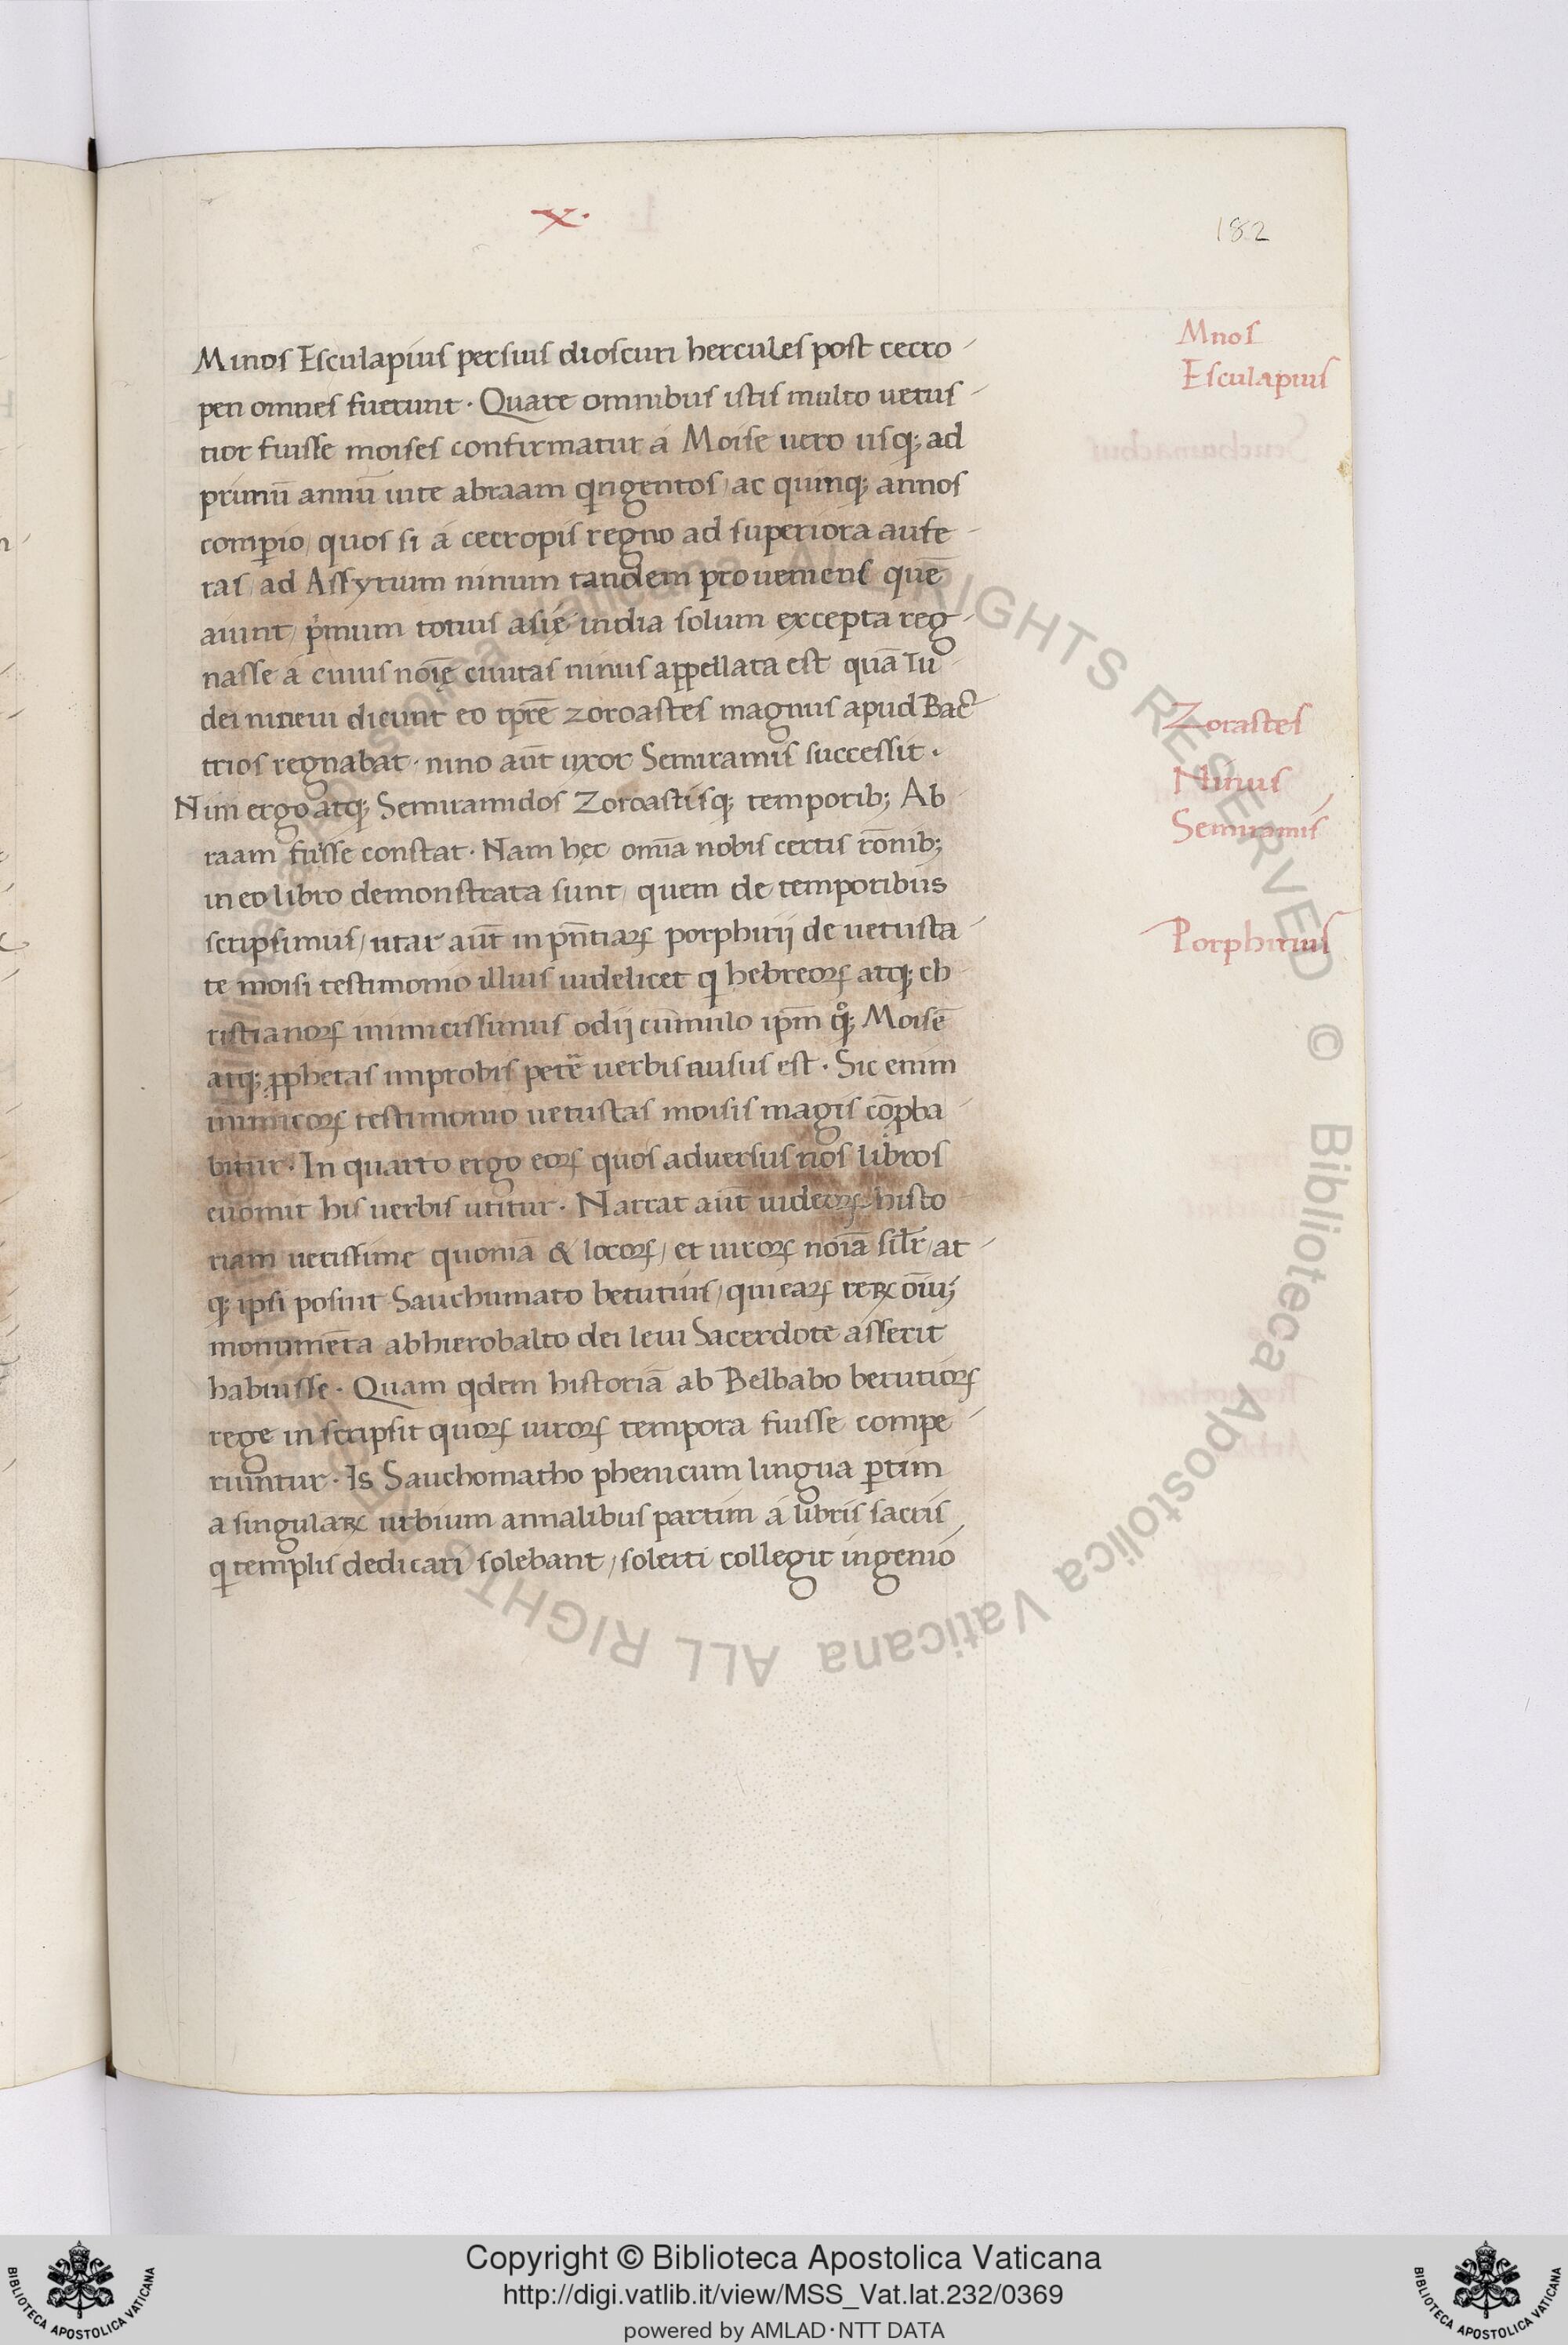 x.
182
Minos Esculapius persius dioscuri hercules post cecro-
pen omnes fuerunt. Quare omnibus istis multo uetus-
tior fuisse moises confirmatur á Moise uero usq; ad
primū annū uite abraam qngentos/ ac quinq; annos
comperio/ quos si á cecropis regno ad superiora aufe-
ras/ ad Assyrium ninum tandem proueniens quē
aiunt/ pmum totius asię india solum excepta reg-
nasse á cuius noīę ciuitas ninus appellata est quā Iu-
dei nineui dicunt eo tpre zoroastes magnus apud Bac-
trios regnabat. nino aūt uxor Semiramis successit.
Nini ergo atq; Semiramidos Zoroastisq; temporib; Ab-
raam fuisse constat. Nam hęc omīa nobis certis rōnib;
in eo libro demonstrata sunt/ quem de temporibus
scripsimus/ utar aūt in pn̄tiaꝝ porphirij de uetusta-
te moisi testimonio illius uidelicet q hebreoꝝ atq; ch-
ristianoꝝ inimicissimus odij cumulo ipm̄ qͦq; Moisē
atq; pphetas improbis petē uerbis nusus est. Sic enim
inimicoꝝ testimonio uetustas moisis magis cōpba-
bitur. In quarto ergo eoꝝ quos aduersus nos libros
euomit his uerbis utitur. Narrat aūt iudeoꝝ histo-
riam uerissime quoniā & locoꝝ/ et uiroꝝ noīa silr̄/ at-
q; ipsi posuit Sauchumato berutius/ qui eaꝝ reꝝ oīuȝ
monumēta ab hierobalto dei leui Sacerdote asserit
habuisse. Quam qdem historiā ab Belbabo berutioꝝ
rege inscripsit quoꝝ uiroꝝ tempora fuisse compe-
riuntur. Is Sauchomatho phenicum lingua ꝑtim
a singulaꝝ urbium annalibus partim á libris sacris
q templis dedicari solebant/ solerti collegit ingenio
Mnos
Esculapius
Zorastes
Ninus
Semiramis
Porphirius
Biblioteca Apostolica Vaticana ALL RIGHTS RESERVED © Biblioteca Apostolica Vaticana ALL RIGHTS
Copyright © Biblioteca Apostolica Vaticana
http://digi.vatlib.it/view/MSS_Vat.lat.232/0369
powered by AMLAD·NTT DATA
BIBLIOTECA APOSTOLICA VATICANA
BIBLIOTECA APOSTOLICA VATICANA